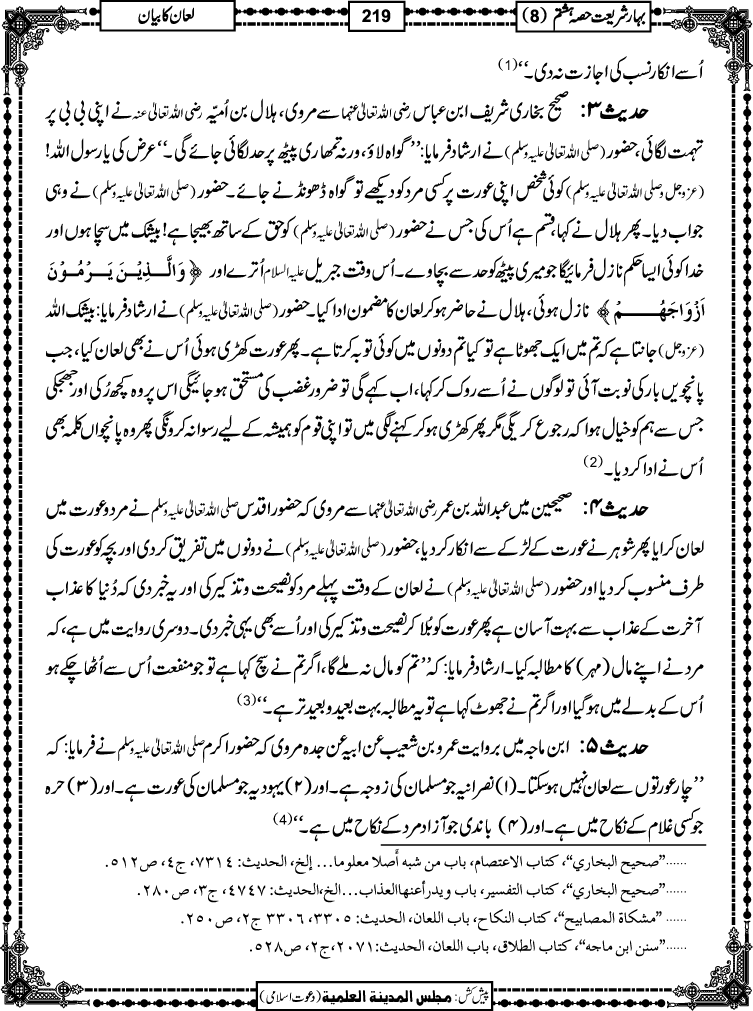 بہارشریعت حصہ ہشتم (8)
219
لعان کا بیان
اُسے انکار نسب کی اجازت نہ دی۔‘‘(1)
حدیث ۳: صحیح بخاری شریف ابن عباس رضی اللہ تعالیٰ عنہما سے مروی، ہلال بن اُمیّہ رضی اللہ تعالیٰ عنہ نے اپنی بی بی پر
تہمت لگائی، حضور (صلی اللہ تعالیٰ علیہ وسلم) نے ارشاد فرمایا: ’’گواہ لاؤ، ورنہ تمھاری پیٹھ پر حد لگائی جائے گی۔‘‘ عرض کی یارسول اللہ!
(عزوجل وصلی اللہ تعالیٰ علیہ وسلم) کوئی شخص اپنی عورت پر کسی مرد کو دیکھے تو گواہ ڈھونڈنے جائے۔ حضور (صلی اللہ تعالیٰ علیہ وسلم) نے وہی
جواب دیا۔ پھر ہلال نے کہا، قسم ہے اُس کی جس نے حضور (صلی اللہ تعالیٰ علیہ وسلم) کو حق کے ساتھ بھیجا ہے! بیشک میں سچا ہوں اور
خدا کوئی ایسا حکم نازل فرمائیگا جو میری پیٹھ کو حد سے بچاوے۔ اُس وقت جبریل علیہ السلام اُترے اور ﴿ وَالَّذِیْنَ یَرْمُوْنَ
اَزْوَاجَهُمْ ﴾ نازل ہوئی، ہلال نے حاضر ہو کر لعان کا مضمون ادا کیا۔ حضور (صلی اللہ تعالیٰ علیہ وسلم) نے ارشاد فرمایا: بیشک اللہ
(عزوجل) جانتا ہے کہ تم میں ایک جھوٹا ہے تو کیا تم دونوں میں کوئی توبہ کرتا ہے۔ پھر عورت کھڑی ہوئی اُس نے بھی لعان کیا، جب
پانچویں بار کی نوبت آئی تو لوگوں نے اُسے روک کر کہا، اب کہے گی تو ضرور غضب کی مستحق ہو جائیگی اس پر وہ کچھ رُکی اور جھجکی
جس سے ہم کو خیال ہوا کہ رجوع کریگی مگر پھر کھڑی ہو کر کہنے لگی میں تو اپنی قوم کو ہمیشہ کے لیے رسوا نہ کرونگی پھر وہ پانچواں کلمہ بھی
اُس نے ادا کر دیا۔(2)
حدیث ۴: صحیحین میں عبداللہ بن عمر رضی اللہ تعالیٰ عنہما سے مروی کہ حضور اقدس صلی اللہ تعالیٰ علیہ وسلم نے مرد و عورت میں
لعان کرایا پھر شوہر نے عورت کے لڑکے سے انکار کر دیا، حضور (صلی اللہ تعالیٰ علیہ وسلم) نے دونوں میں تفریق کر دی اور بچہ کو عورت کی
طرف منسوب کر دیا اور حضور (صلی اللہ تعالیٰ علیہ وسلم) نے لعان کے وقت پہلے مرد کو نصیحت و تذکیر کی اور یہ خبر دی کہ دُنیا کا عذاب
آخرت کے عذاب سے بہت آسان ہے پھر عورت کو بُلا کر نصیحت و تذکیر کی اور اُسے بھی یہی خبر دی۔ دوسری روایت میں ہے، کہ
مرد نے اپنے مال (مہر) کا مطالبہ کیا۔ ارشاد فرمایا: کہ ’’تم کو مال نہ ملے گا، اگر تم نے سچ کہا ہے تو جو منفعت اُس سے اُٹھا چکے ہو
اُس کے بدلے میں ہو گیا اور اگر تم نے جھوٹ کہا ہے تو یہ مطالبہ بہت بعید و بعید تر ہے۔‘‘(3)
حدیث ۵: ابن ماجہ میں بروایت عمرو بن شعیب عن ابیہ عن جدہ مروی کہ حضور اکرم صلی اللہ تعالیٰ علیہ وسلم نے فرمایا: کہ
’’چار عورتوں سے لعان نہیں ہو سکتا۔ (۱) نصرانیہ جو مسلمان کی زوجہ ہے۔ اور (۲) یہودیہ جو مسلمان کی عورت ہے۔ اور (۳) حرہ
جو کسی غلام کے نکاح میں ہے۔ اور (۴) باندی جو آزاد مرد کے نکاح میں ہے۔‘‘(4)
......”صحيح البخاري“، كتاب الاعتصام، باب من شبه أصلا معلوما... إلخ، الحديث: ٧٣١٤، ج٤، ص٥١٢.
......”صحيح البخاري“، كتاب التفسير، باب ويدرأ عنها العذاب...الخ، الحديث: ٤٧٤٧، ج٣، ص٢٨٠.
......”مشكاة المصابيح“، كتاب النكاح، باب اللعان، الحديث: ٣٣٠٥، ٣٣٠٦ ج٢، ص٢٥٠.
......”سنن ابن ماجه“، كتاب الطلاق، باب اللعان، الحديث: ٢٠٧١، ج٢، ص٥٢٨.
پیش کش: مجلس المدینة العلمیة (دعوت اسلامی)